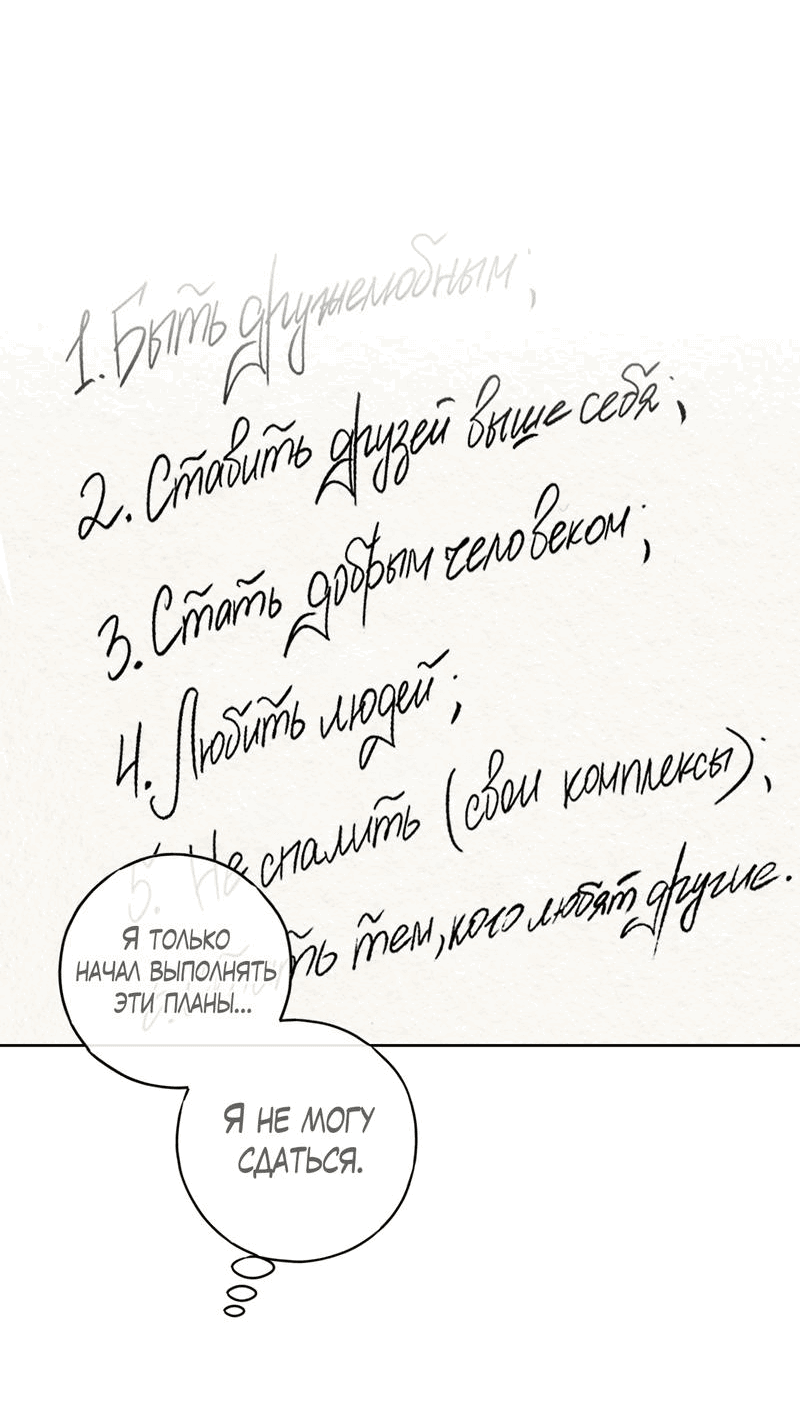 1. Быть дружелюбным;
2. Ставить друзей выше себя;
3. Стать добрым человеком;
4. Любить людей;
5. Не спалить (свои комплексы);
6. Стать тем, кого любят другие.
Я ТОЛЬКО
НАЧАЛ ВЫПОЛНЯТЬ
ЭТИ ПЛАНЫ...
Я НЕ МОГУ
СДАТЬСЯ.